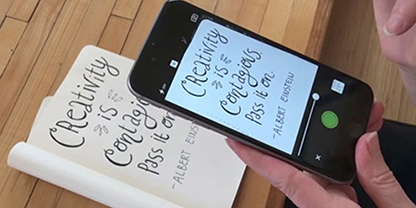 CREATIVITY
is
Contagious.
Pass it on.
-ALBERT EINSTEIN
CREATIVITY
is
Contagious
Pass it on.
-ALBERT EINSTEIN